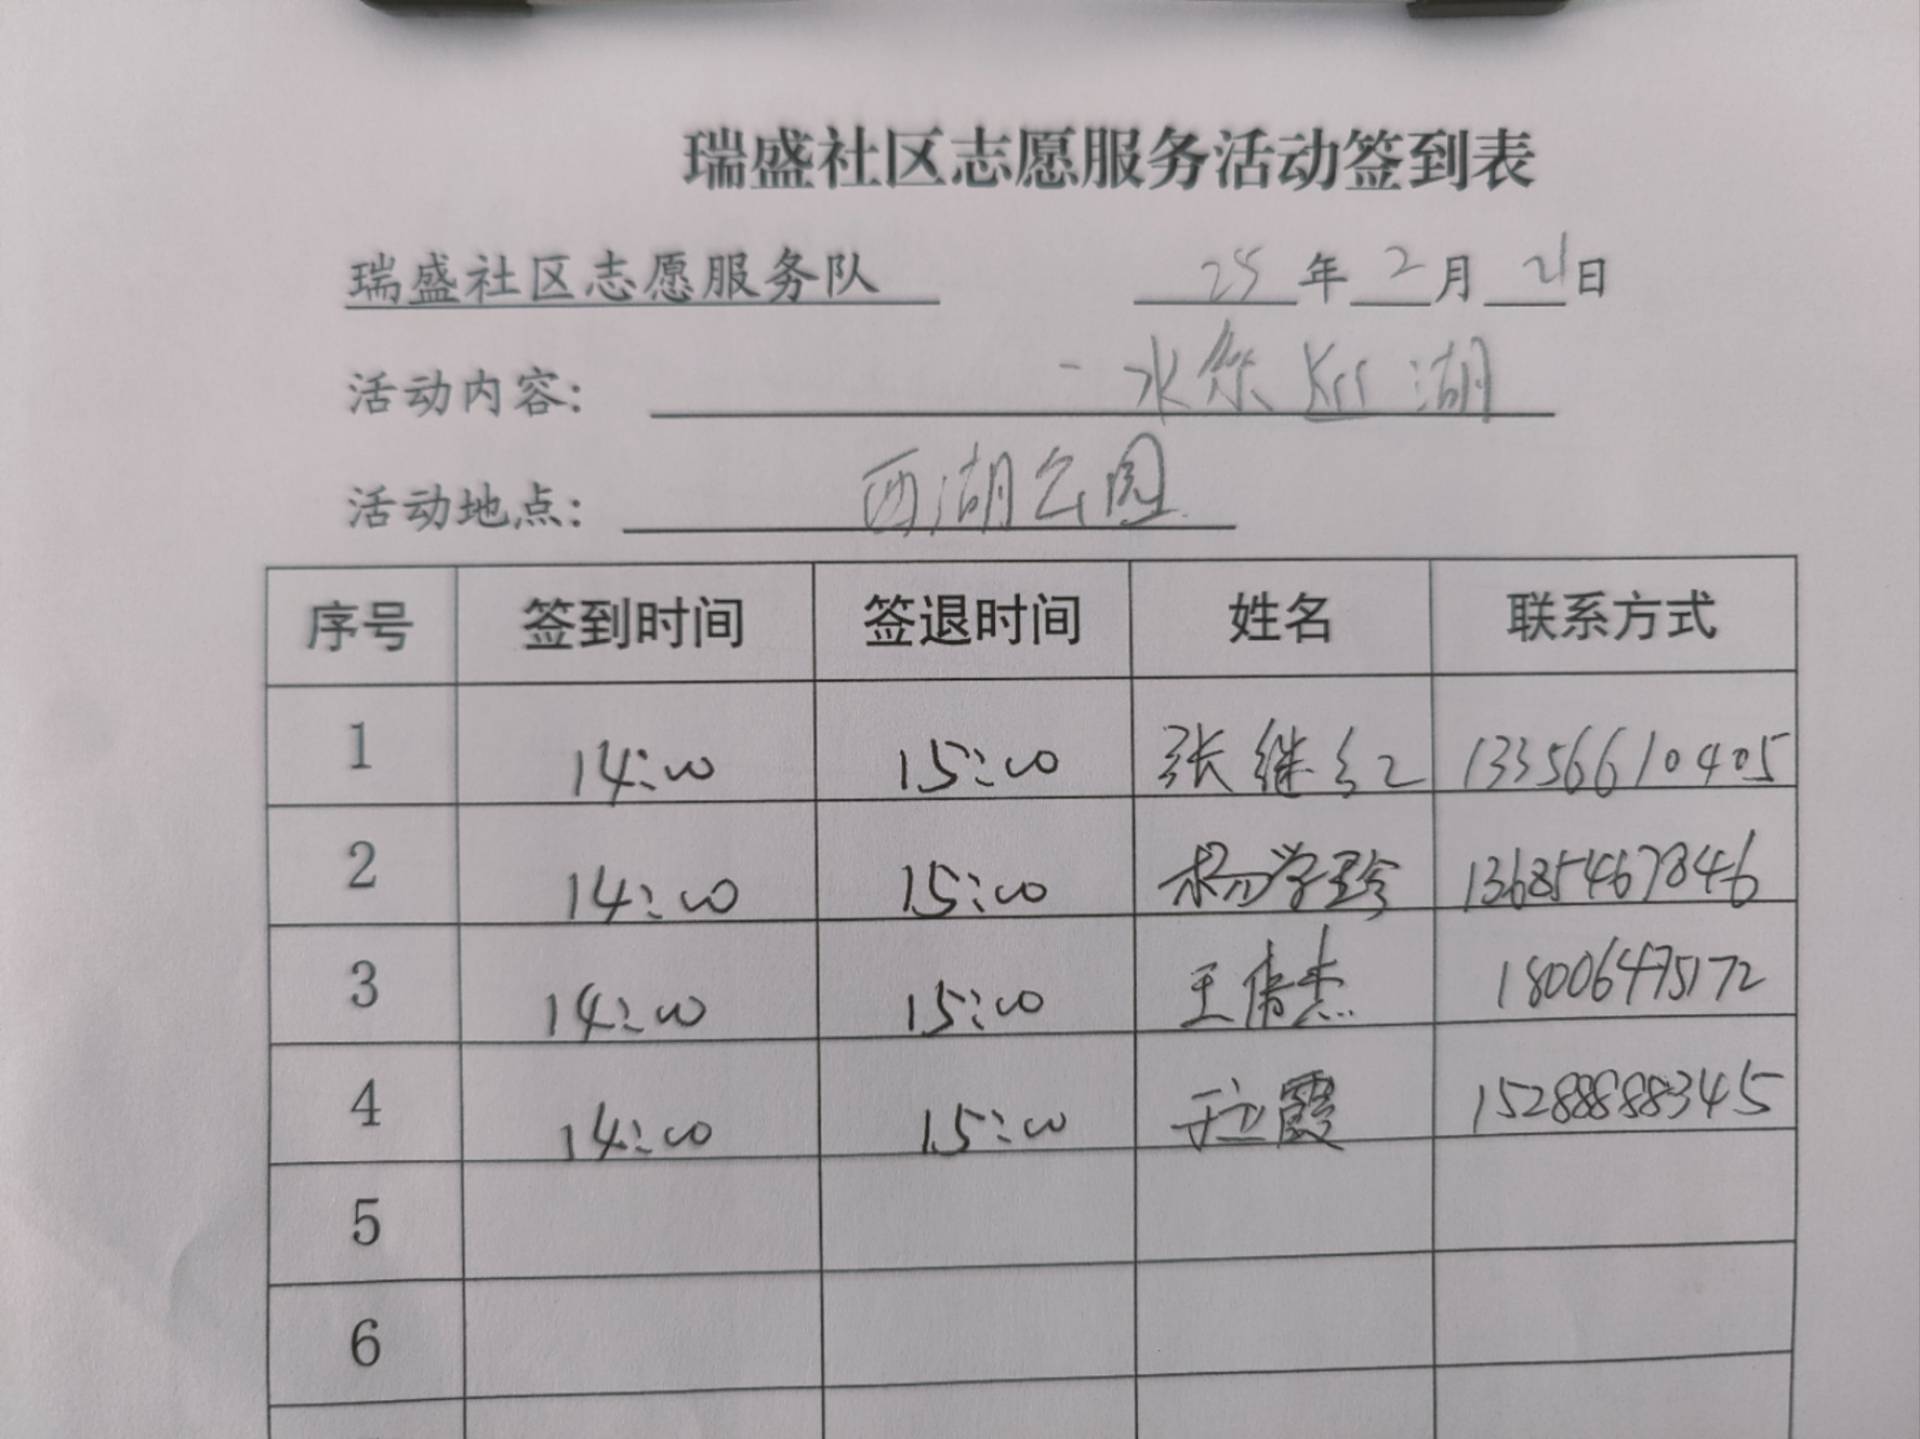 瑞盛社区志愿服务活动签到表
瑞盛社区志愿服务队 25年2月21日
活动内容: 湖
活动地点: 西湖公园
序号 签到时间 签退时间 姓名 联系方式
1 14:00 15:00 张继红 13356610405
2 14:00 15:00 杨学珍 13685467846
3 14:00 15:00 王倩杰 18006475172
4 14:00 15:00 霞 15288888345
5
6